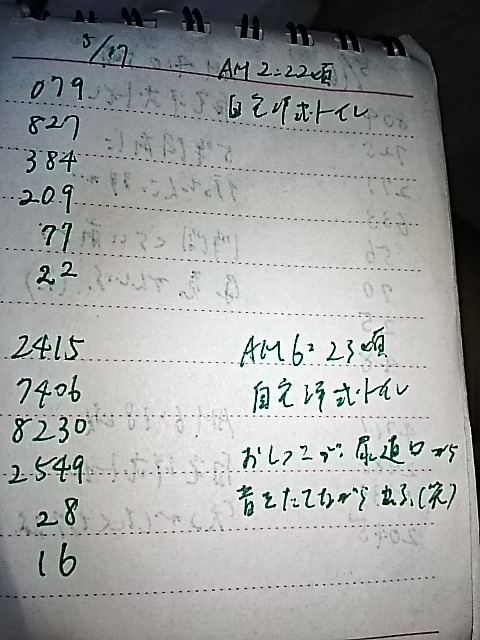 5/17
AM2:22頃
079
自宅洋式トイレ
827
384
209
77
22
2415
AM6:23頃
7406
自宅洋式トイレ
8230
おしっこが尿道口から
2549
音をたてながら出る(笑)
28
16